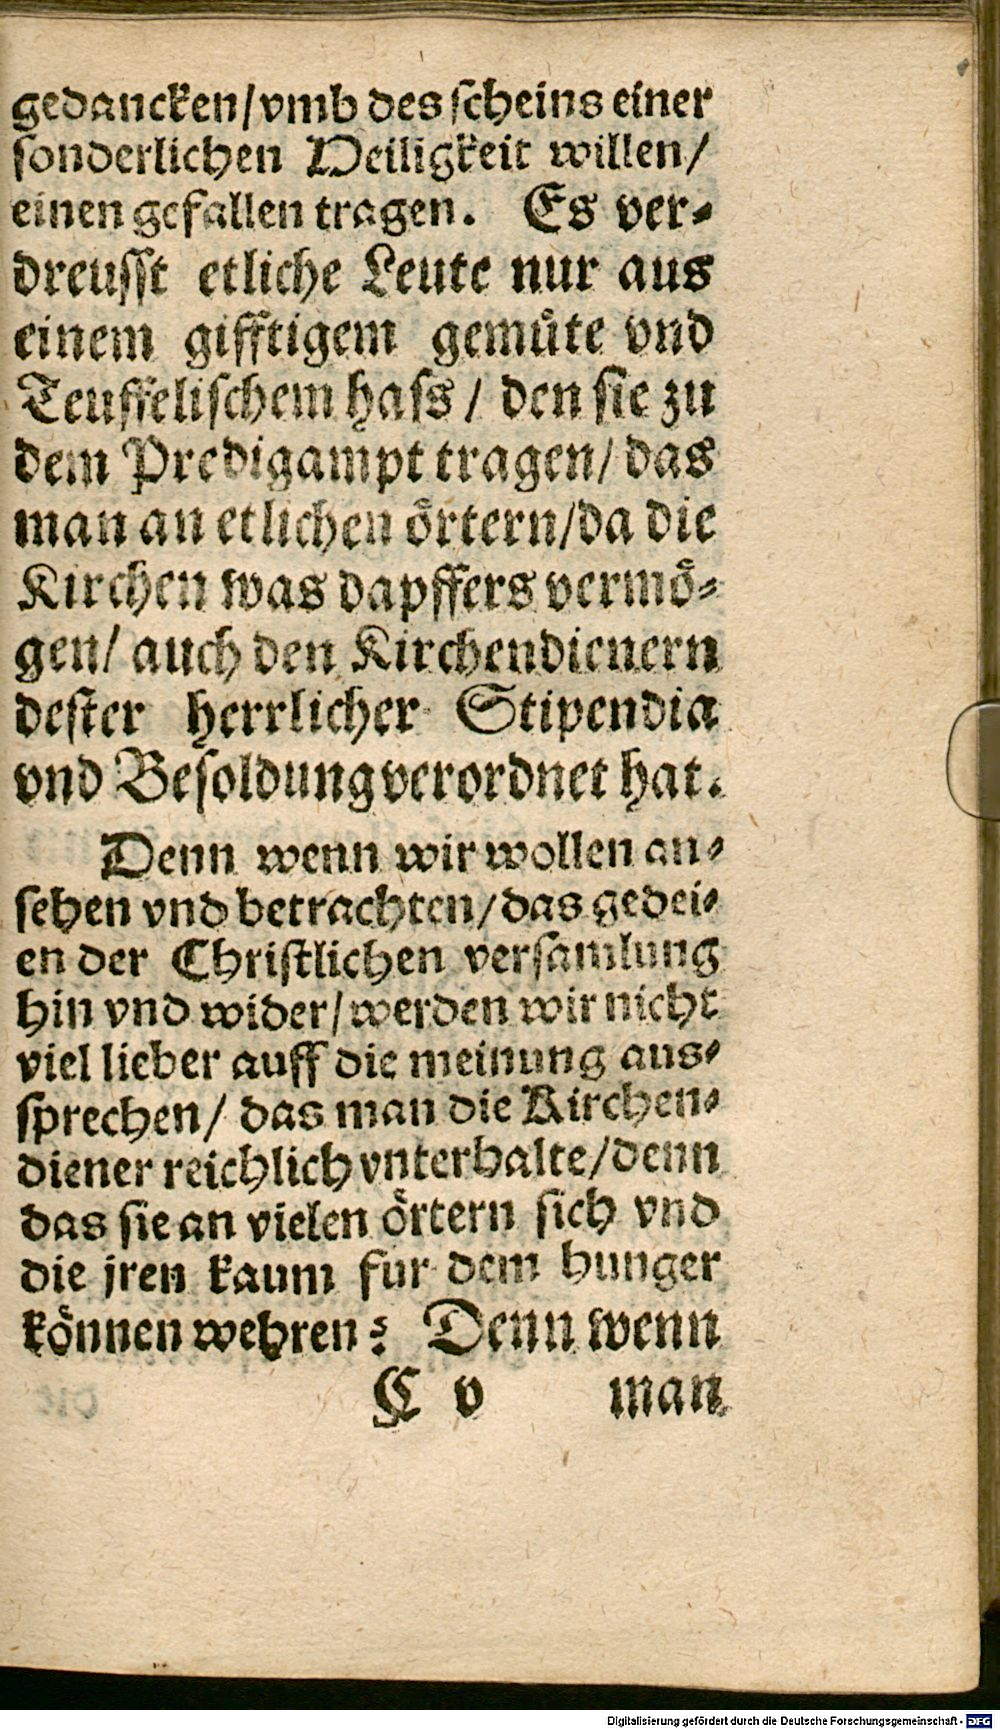 gedancken/vmb des scheins einer
sonderlichen Heiligkeit willen/
einen gefallen tragen. Es ver-
dreusst etliche Leute nur aus
einem gifftigem gemüte vnd
Teuffelischem hass / den sie zu
dem Predigampt tragen/das
man an etlichen örtern/da die
Kirchen was dapffers vermö-
gen/ auch den Kirchendienern
dester herrlicher Stipendia
vnd Besoldung verordnet hat.
Denn wenn wir wollen an-
sehen vnd betrachten/das gedei-
en der Christlichen versamlung
hin vnd wider/werden wir nicht
viel lieber auff die meinung aus-
sprechen/ das man die Kirchen-
diener reichlich vnterhalte/denn
das sie an vielen örtern sich vnd
die jren kaum fur dem hunger
können wehren? Denn wenn
C v man
Digitalisierung gefördert durch die Deutsche Forschungsgemeinschaft - DFG